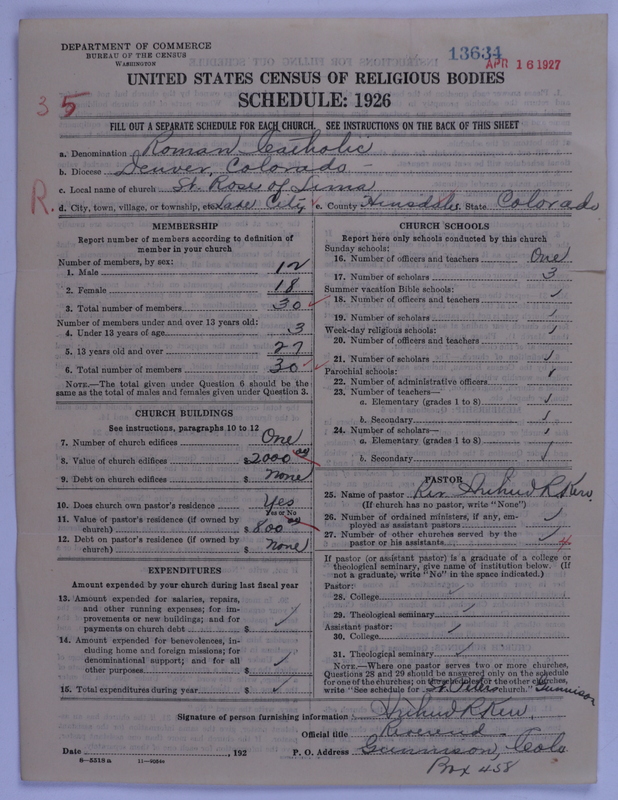 DEPARTMENT OF COMMERCE
BUREAU OF THE CENSUS
WASHINGTON
13634
APR 16 1927
UNITED STATES CENSUS OF RELIGIOUS BODIES
SCHEDULE: 1926
35
FILL OUT A SEPARATE SCHEDULE FOR EACH CHURCH. SEE INSTRUCTIONS ON THE BACK OF THIS SHEET
a. Denomination Roman Catholic
b. Diocese Denver, Colorado
c. Local name of church St. Rose of Lima
R.
d. City, town, village, or township, etc. Lake City e. County Hinsdale f. State Colorado
MEMBERSHIP
Report number of members according to definition of
member in your church
Number of members, by sex:
1. Male 12
2. Female 18
3. Total number of members 30 ✓
Number of members under and over 13 years old:
4. Under 13 years of age 3
5. 13 years old and over 27
6. Total number of members 30 ✓
NOTE.—The total given under Question 6 should be the
same as the total of males and females given under Question 3.
CHURCH BUILDINGS
See instructions, paragraphs 10 to 12
7. Number of church edifices One
8. Value of church edifices $ 2000 00
9. Debt on church edifices $ none
10. Does church own pastor's residence Yes
Yes or No
11. Value of pastor's residence (if owned by
church) $ 800 00
12. Debt on pastor's residence (if owned by
church) $ none
EXPENDITURES
Amount expended by your church during last fiscal year
13. Amount expended for salaries, repairs,
and other running expenses; for im-
provements or new buildings; and for
payments on church debt $ ✓
14. Amount expended for benevolences, in-
cluding home and foreign missions; for
denominational support; and for all
other purposes $ ✓
15. Total expenditures during year $ ✓
CHURCH SCHOOLS
Report here only schools conducted by this church
Sunday schools:
16. Number of officers and teachers One
17. Number of scholars 3
Summer vacation Bible schools:
18. Number of officers and teachers ✓
19. Number of scholars ✓
Week-day religious schools: ✓
20. Number of officers and teachers
21. Number of scholars ✓
Parochial schools: ✓
22. Number of administrative officers
23. Number of teachers—
a. Elementary (grades 1 to 8) ✓
b. Secondary ✓
24. Number of scholars— ✓
a. Elementary (grades 1 to 8) ✓
b. Secondary ✓
PASTOR
25. Name of pastor Rev. R. Kerr
(If church has no pastor, write "None")
26. Number of ordained ministers, if any, em-
ployed as assistant pastors ✓
27. Number of other churches served by the
pastor or his assistants ✓
If pastor (or assistant pastor) is a graduate of a college or
theological seminary, give name of institution below. (If
not a graduate, write "No" in the space indicated.)
Pastor:
28. College ✓
29. Theological seminary ✓
Assistant pastor:
30. College ✓
31. Theological seminary ✓
NOTE.—Where one pastor serves two or more churches,
Questions 28 and 29 should be answered only on the schedule
for one of the churches; on the schedules for the other churches,
write "See schedule for St. Peters church." Gunnison
Signature of person furnishing information R. Kerr
Official title Reverend
Date , 192 P. O. Address Gunnison, Colo.
8—5518 a 11—9054
Box 458